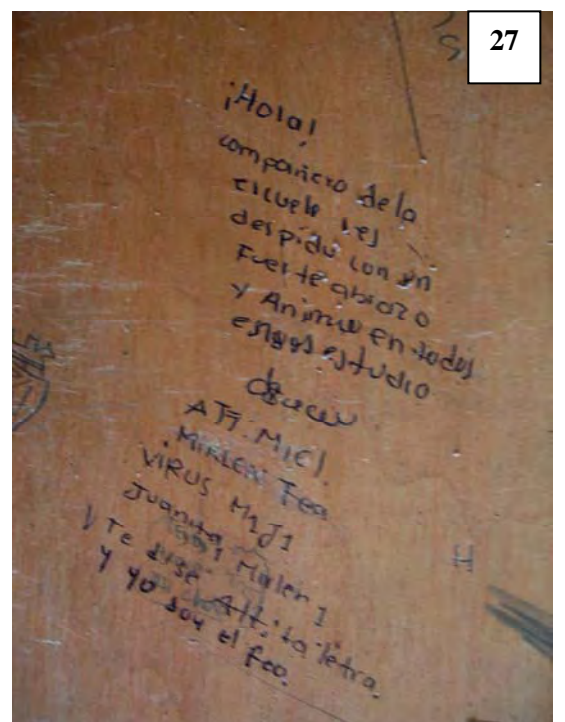 27
¡Hola!
compañero de la
escuela les
despido con un
Fuerte abrazo
y Animo en todos
estudio
ATT: MICI.
MIRLEN Fea
VIRUS M1J1
Juanita
1 Mirlen 1
y Te dise Att: la letra.
y yo soy el feo.
H